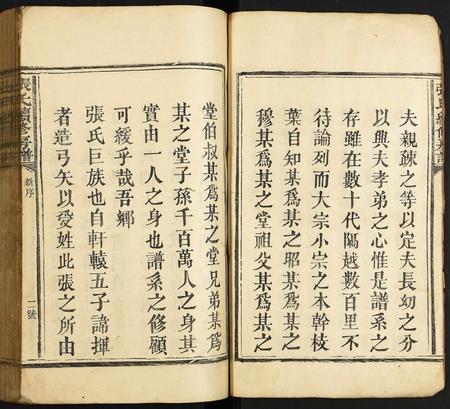 夫親疎之等以定夫長幼之分
以興夫孝弟之心惟是譜系之
存雖在數十代隔越數百里不
待論列而大宗小宗之本幹枝
葉自知某爲某之昭某爲某之
穆某爲某之堂祖父某爲某之
堂伯叔某爲某之堂兄弟某爲
某之堂子孫千百萬人之身其
實由一人之身也譜系之修顧
可緩乎哉吾鄉
張氏巨族也自軒轅五子諱揮
者造弓矢以爰姓此張之所由
張氏續修房譜
新序
二號